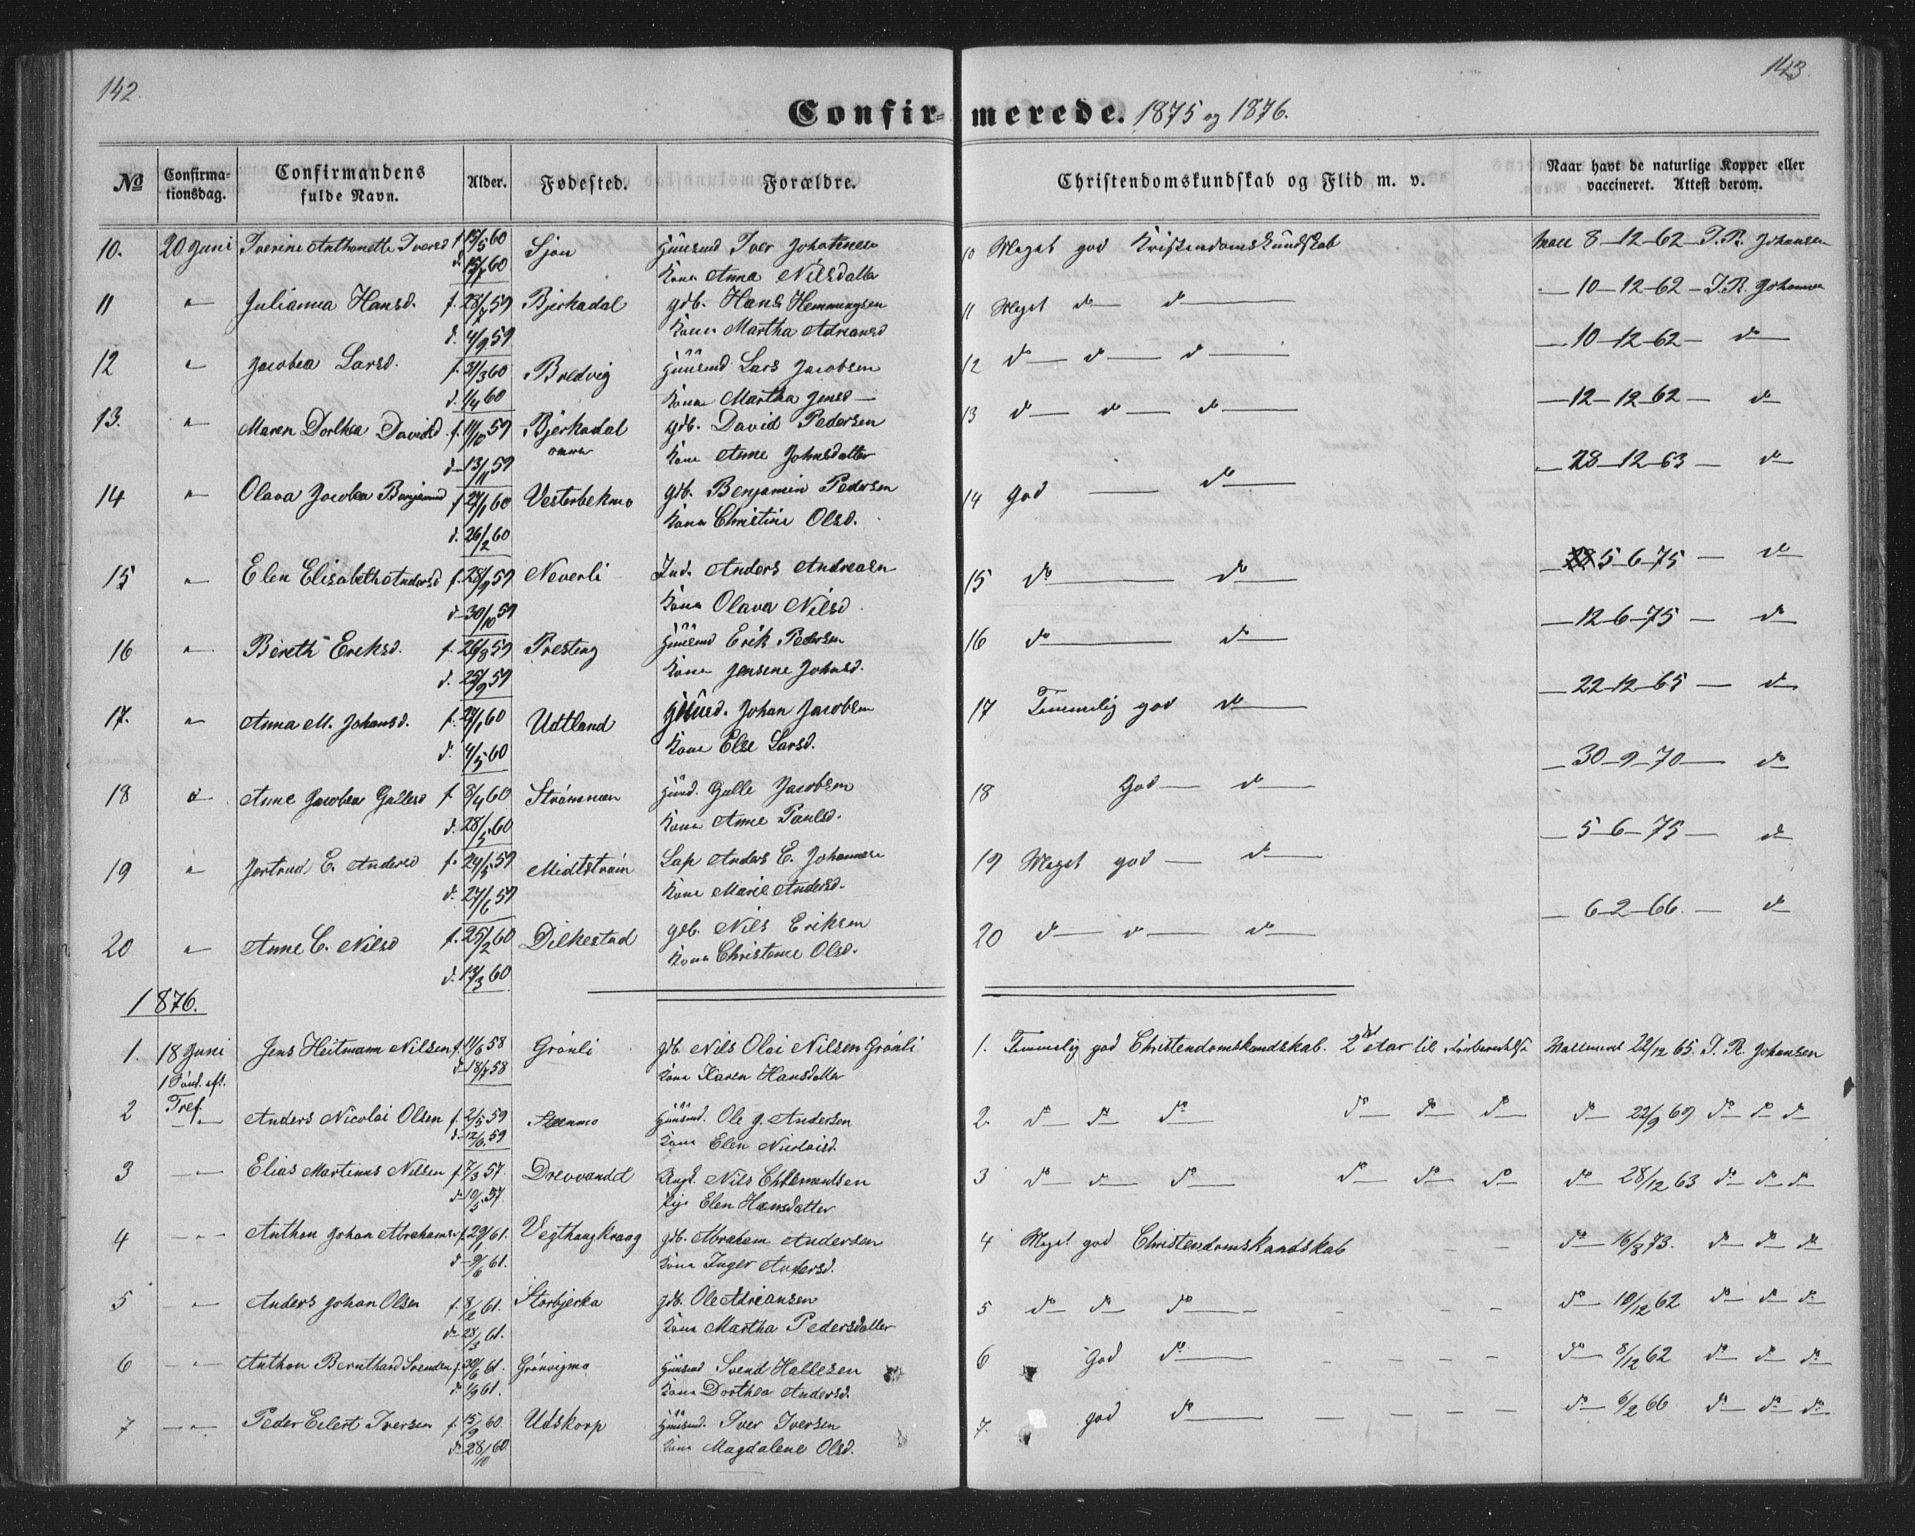 142.
143.
Confirmerede. 1875 og 1876.
No Confirmationsdag. Confirmandens fulde Navn. Alder. Fødested. Forældre. Christendomskundskab og Flid m. v. Naar havt de naturlige Kopper eller vaccineret. Attest derom.
10. 20 Juni Iverine Anthonette Iversd f. 15/5 60 Sjon Huusmd Iver Johannesen 10 Meget god Kristendomskundskab Vacc 8-12-62 - J. R. Johansen
d. 60 Kone Anna Nilsdatter
11 " Julianna Hansd. f. 28/7 59 Bjerkadal gdb. Hans Hemmingsen 11 Meget do do — 10-12-62 - J. R. Johansen
d. 4/9 59 Kone Martha Adriansd
12 " Jacobea Larsd. f. 3 60 Bredvig Huusmd Lars Jacobsen 12 do do do — 10-12-62 - do
d. 1/4 60 Kone Martha Jensd
13. " Maren Dorthea Davidsd f. 11/10 59 Bjerkadal gdb. David Pedersen 13 do do do — 12-12-62 - do
d. 13/11 59 Kone Anne Johnsdatter
14 " Olava Jacobea Benjamind f. 27/1 60 Vesterbekmo gdb. Benjamin Pedersen 14 god do — 28-12-63 - do
d. 26/2 60 Kone Christine Olsd.
15 " Elen Elisabetha Andersd f. 28/9 59 Neverli Ind. Anders Andreasen 15 do do — 5-6-75 - do
d. 30/10 59 Kone Olava Nilsd.
16 " Bereth Eriksd. f. 26/8 59 Presteng Huusmd Erik Pedersen 16 do do — 12-6-75 - do
d. 25/9 59 Kone Jensine Johnsd.
17. " Anna M. Johansd. f. 27/1 60 Udtland Huusmd. Johan Jacobsen 17 Temmelig god do — 22-12-65 - do
d. 4/5 60 Kone Else Larsd.
18 " Anne Jacobea Gallesd f. 8/4 60 Strømnæs Huusmd. Galle Jacobsen 18 God do — 30-9-70 - do
d. 28/5 60 Kone Anne Paulsd.
19 " Jertrud E. Andersd f. 24/5 59 Midtstrøm Lap Anders C. Johannese 19 Meget god do — 5-6-75 - do
d. 27/6 59 Kone Marie Andersd.
20 " Anne C. Nilsd f. 25/2 60 Dilkestad gdb. Nils Eriksen 20 do do do — 6-2-66. - do
d. 3 60 Kone Christine Olsd.
1876.
1. 18 Juni Jens Heitmann Nilsen f. 11/6 58 Grønli gdb. Nils Olai Nilsen Grønli 1. Temmelig god Christendomskundskab. 2det Aar til Forberedelse Vaccineret 22/12 65. J. R. Johansen
1 Sønd. eft. Tref. d. 18/7 58 Kone Karen Hansdatter
2 " Anders Nicolai Olsen f. 2/5 59 Steenmo Huusmd. Ole G. Andersen 2. do do do do do do do 22/9 69 do do do
d. 12/6 59 Kone Elen Nicolaisd.
3 " Elias Martinus Nilsen f. 7/3 57. Drevvandet Ungk. Nils Chlementsen 3 do do do do do do do 28/12 63 do do do
d. 10/5 57. Pige Elen Hansdatter
4 " Anthon Johan Abrahams. f. 29/1 61. Vegthaugkraag gdb. Abraham Andersen 4 Meget god Christendomskundskab do 16/8 73. do do do
d. 9/6 61. Kone Inger Andersd.
5 " Anders Johan Olsen f. 8/2 61. Storbjerka gdb. Ole Adriansen 5 do do do do 10/12 62 do do do
d. 28/3 61. Kone Martha Pedersdatter
6 " Anthon Bernthard Svendsen f. 20/6 61. Grønvigmo Huusmd Svend Hallesen 6 God do do 8/12 62 do do do
d. 1/9 61. Kone Dorthea Andersd.
7 " Peder Eilert Iversen f. 15/9 60. Udskorp Huusmd. Iver Iversen 7. god do do 6/2 66 do do do
d. 28/10 60. Kone Magdalene Olsd.